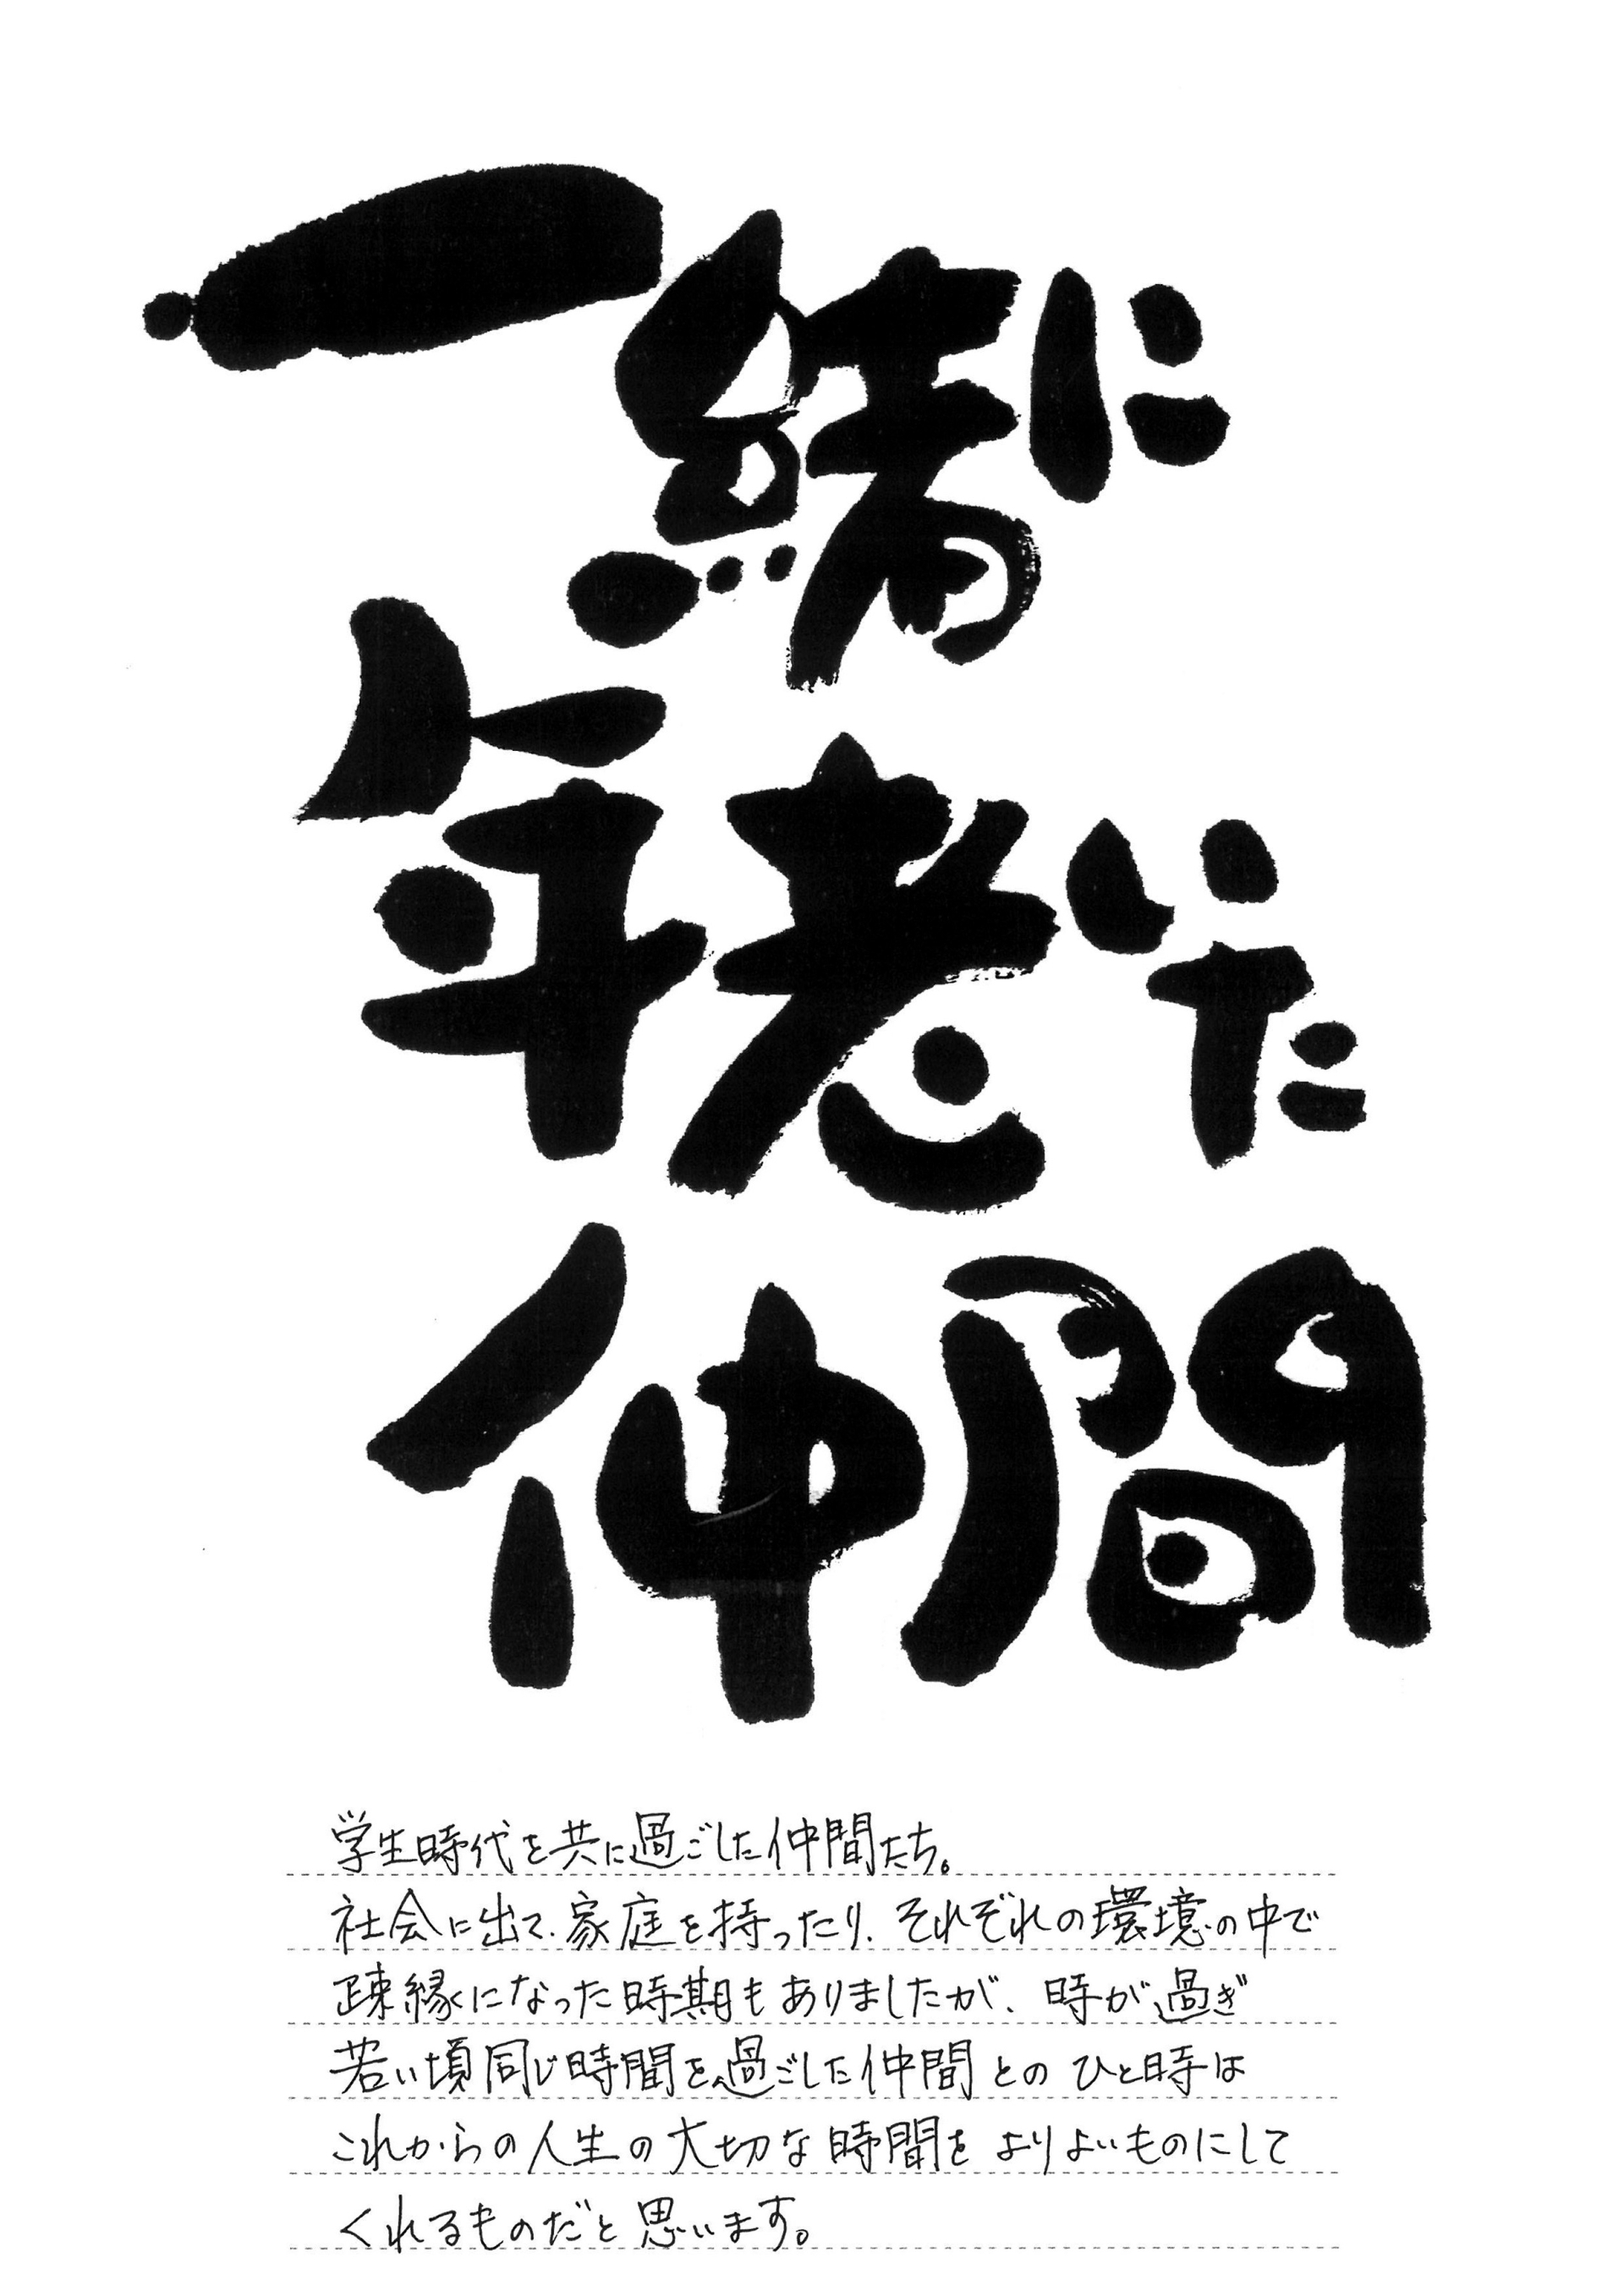 一緒に
年老いた
仲間
学生時代を共に過ごした仲間たち。
社会に出て、家庭を持ったり、それぞれの環境の中で
疎縁になった時期もありましたが、時が過ぎ
若い頃同じ時間を過ごした仲間とのひと時は
これからの人生の大切な時間をよりよいものにして
くれるものだと思います。